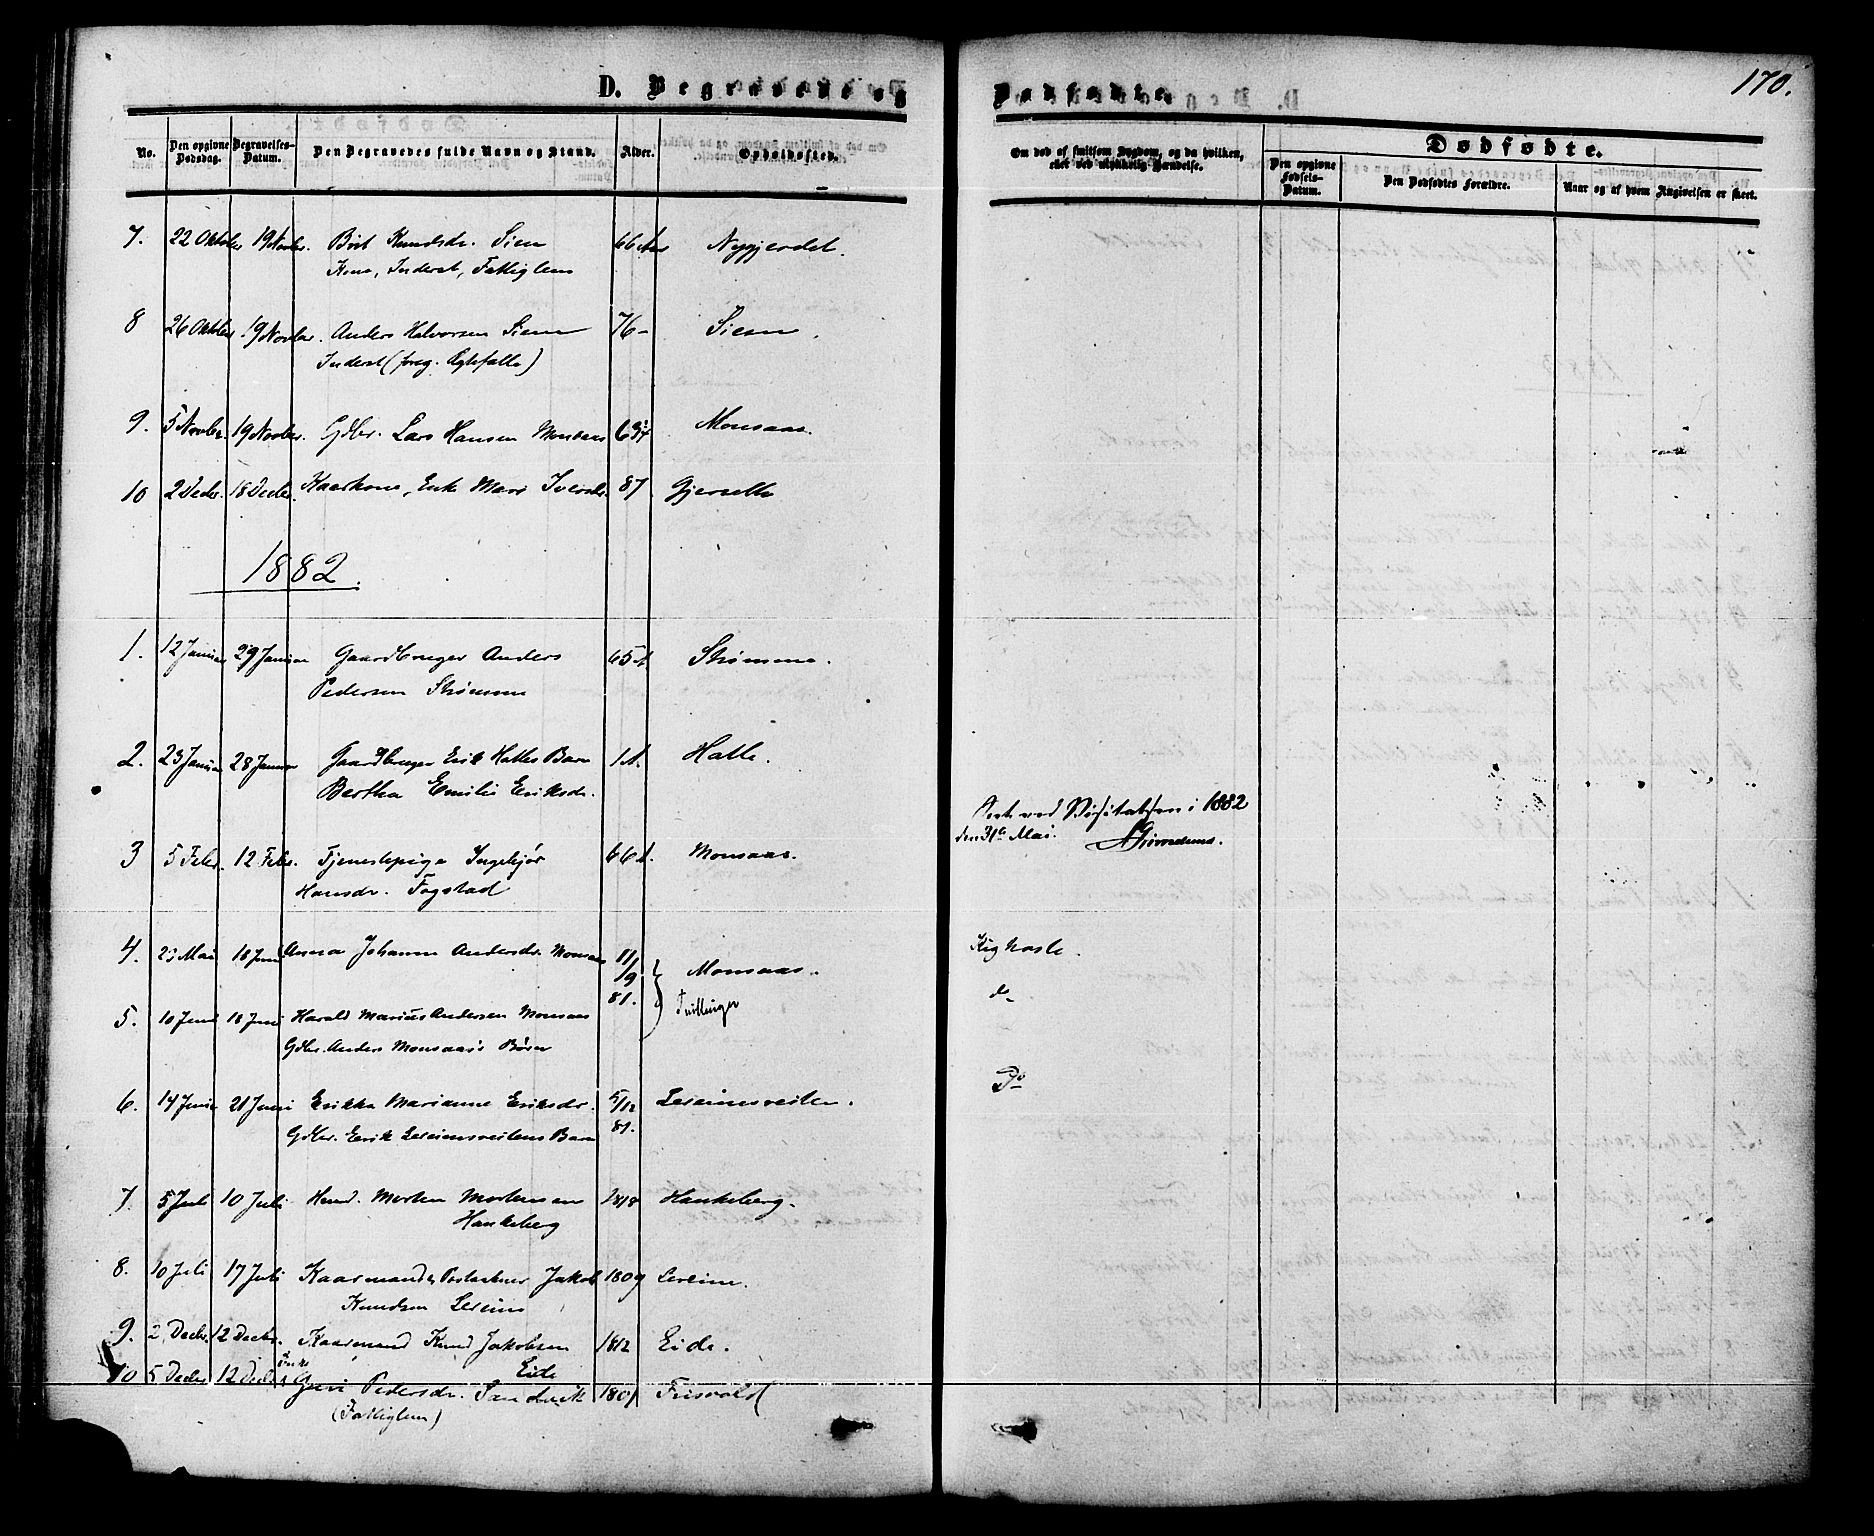 170.
D. Begravede og Dødfødte.
No.
Den opgivne Dødsdag.
Begravelses-Datum.
Den Begravedes fulde Navn og Stand.
Alder.
Opholdssted.
Om død af smitsom Sygdom, og da hvilken, eller ved ulykkelig Hændelse.
Dødfødte.
Den opgivne Fødsels-Datum.
Den Dødfødtes Forældre.
Naar og af hvem Angivelsen er skeet.
7. 22 Oktober 19 Novbr. Brit Knudsdr. Siem 66 Aar Nygjerdet.
Kone, Inderst, Fattiglem
8 26 Oktober 19 Novber. Anders Halvorsen Siem 76 - Siem.
Inderst (foreg. Ægtefælle)
9. 5 Novber. 19 Novber. Gdbr. Lars Hansen Monsaas Monsaas.
10 2 Decbr. 18 Decbr. Kaarkone, Enke Mari Iversdr. 87 Gjersette
1882.
1. 12 Januar 29 Januar Gaardbruger Anders 65 A. Strømme.
Pedersen Strømme
2. 23 Januar 28 Januar Gaardbruger Erik Hatles Barn 1 A. Hatle.
Bertha Emilie Eriksdr.
Seet ved Visitatsen i 1882
den 31te Mai.
3 5 Febr. 12 Febr. Tjenestepige Ingebjør 66 A. Monsaas.
Hansdr. Fogstad
4. 23 Mai 18 Juni Anna Johanna Andersdr. Monsaas 11/9 81. Monsaas. Kighoste.
Tvillinger
5. 10 Juni 18 Juni Harald Marius Andersen Monsaas do
Gdbr. Anders Monsaas's Børn
6. 14 Juni 21 Juni Erikka Marianne Eriksdr. 5/12 81. Lereimsveiten. Do
Gdbr. Erik Lereimsveitens Barn
7. 5 Juli 10 Juli Husmd. Morten Mortensen 1818 Haukeberg.
Haukeberg
8. 10 Juli 17 Juli Kaarmand Jakob 1809 Lereim.
Knudsen Lereim
9. 2 Decbr. 12 Decbr. Kaarmand Knud Jakobsen 1812 Eide.
Eide
10 5 Decbr 12 Decbr. Enke Guri Pedersdr. Sandvik 1801 Frisvold
(Fattiglem)